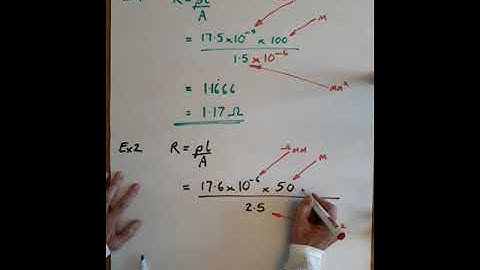 R = ρl
A
= 17.5 x 10⁻⁹ x 100 M
1.5 x 10⁻⁶
mm²
= 1.1666
= 1.17 Ω
Ex2 R = ρl
A
Ω mm
M
= 17.6 x 10⁻⁶ x 50
2.5
2